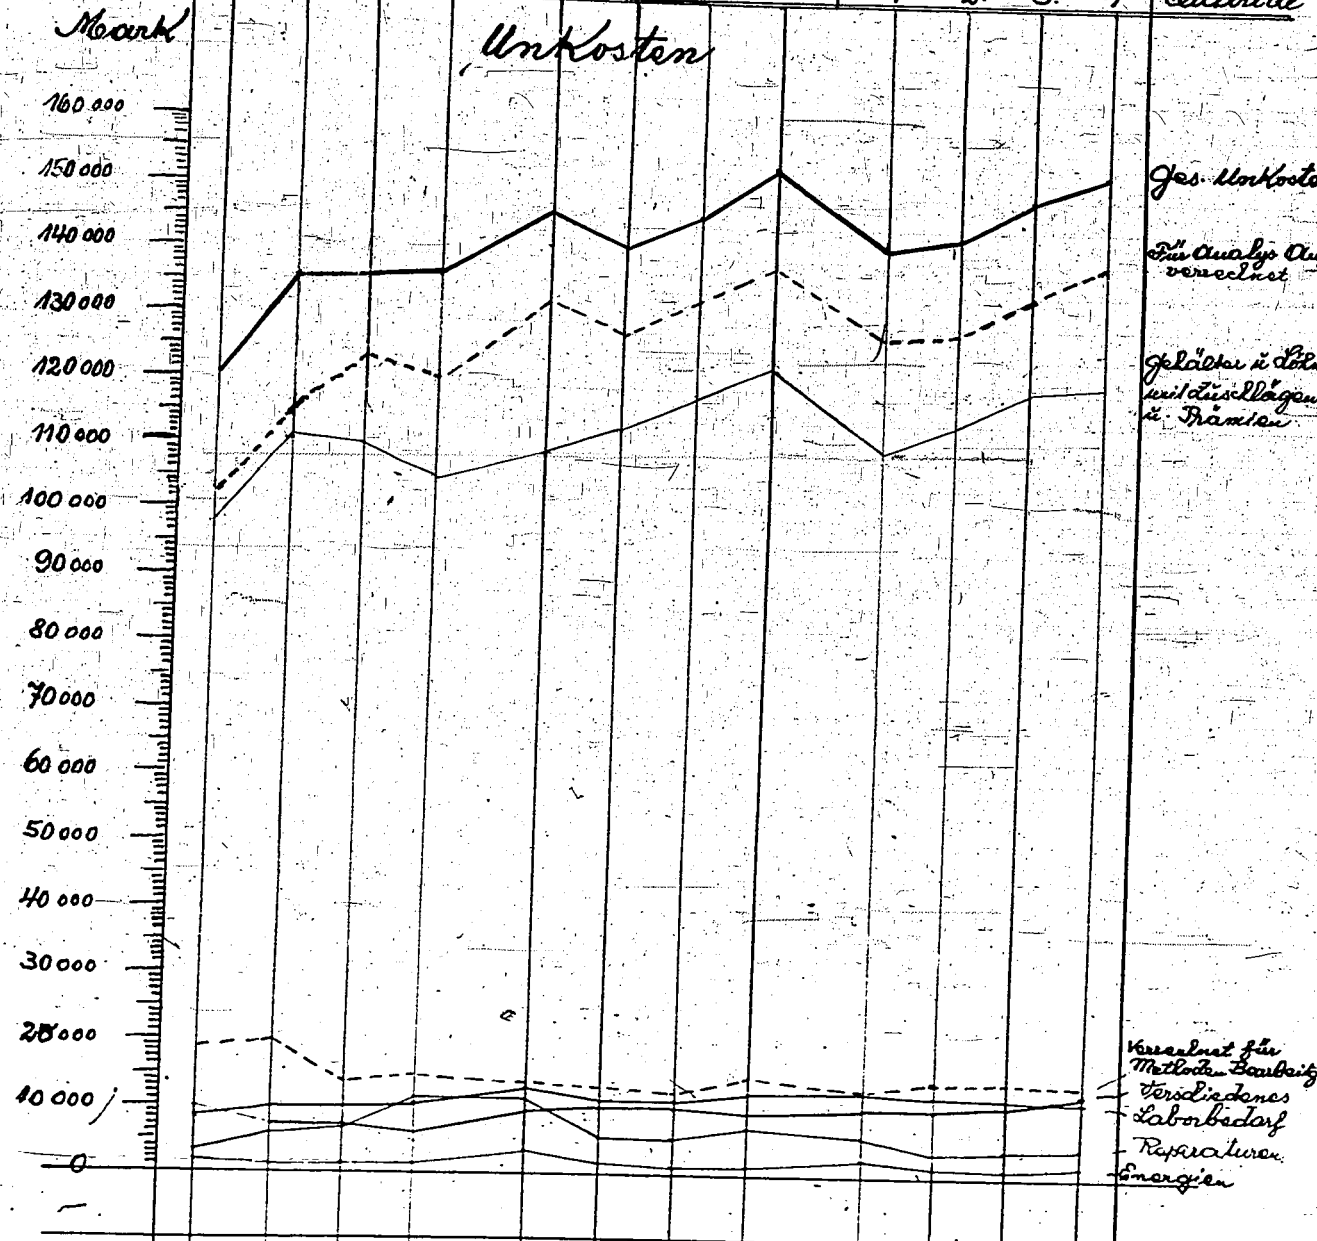 Mark
Unkosten
160 000
150 000
140 000
130 000
120 000
110 000
100 000
90 000
80 000
70 000
60 000
50 000
40 000
30 000
20 000
10 000
0
Ges. Unkoste
Für Analys
verrechnet
Gehälter u Löhn
mit Zuschlägen
u. Prämien
Verrechnet für
Methoden Bearbeitg
Versdiedenes
Laborbedarf
Reparaturen
Energien